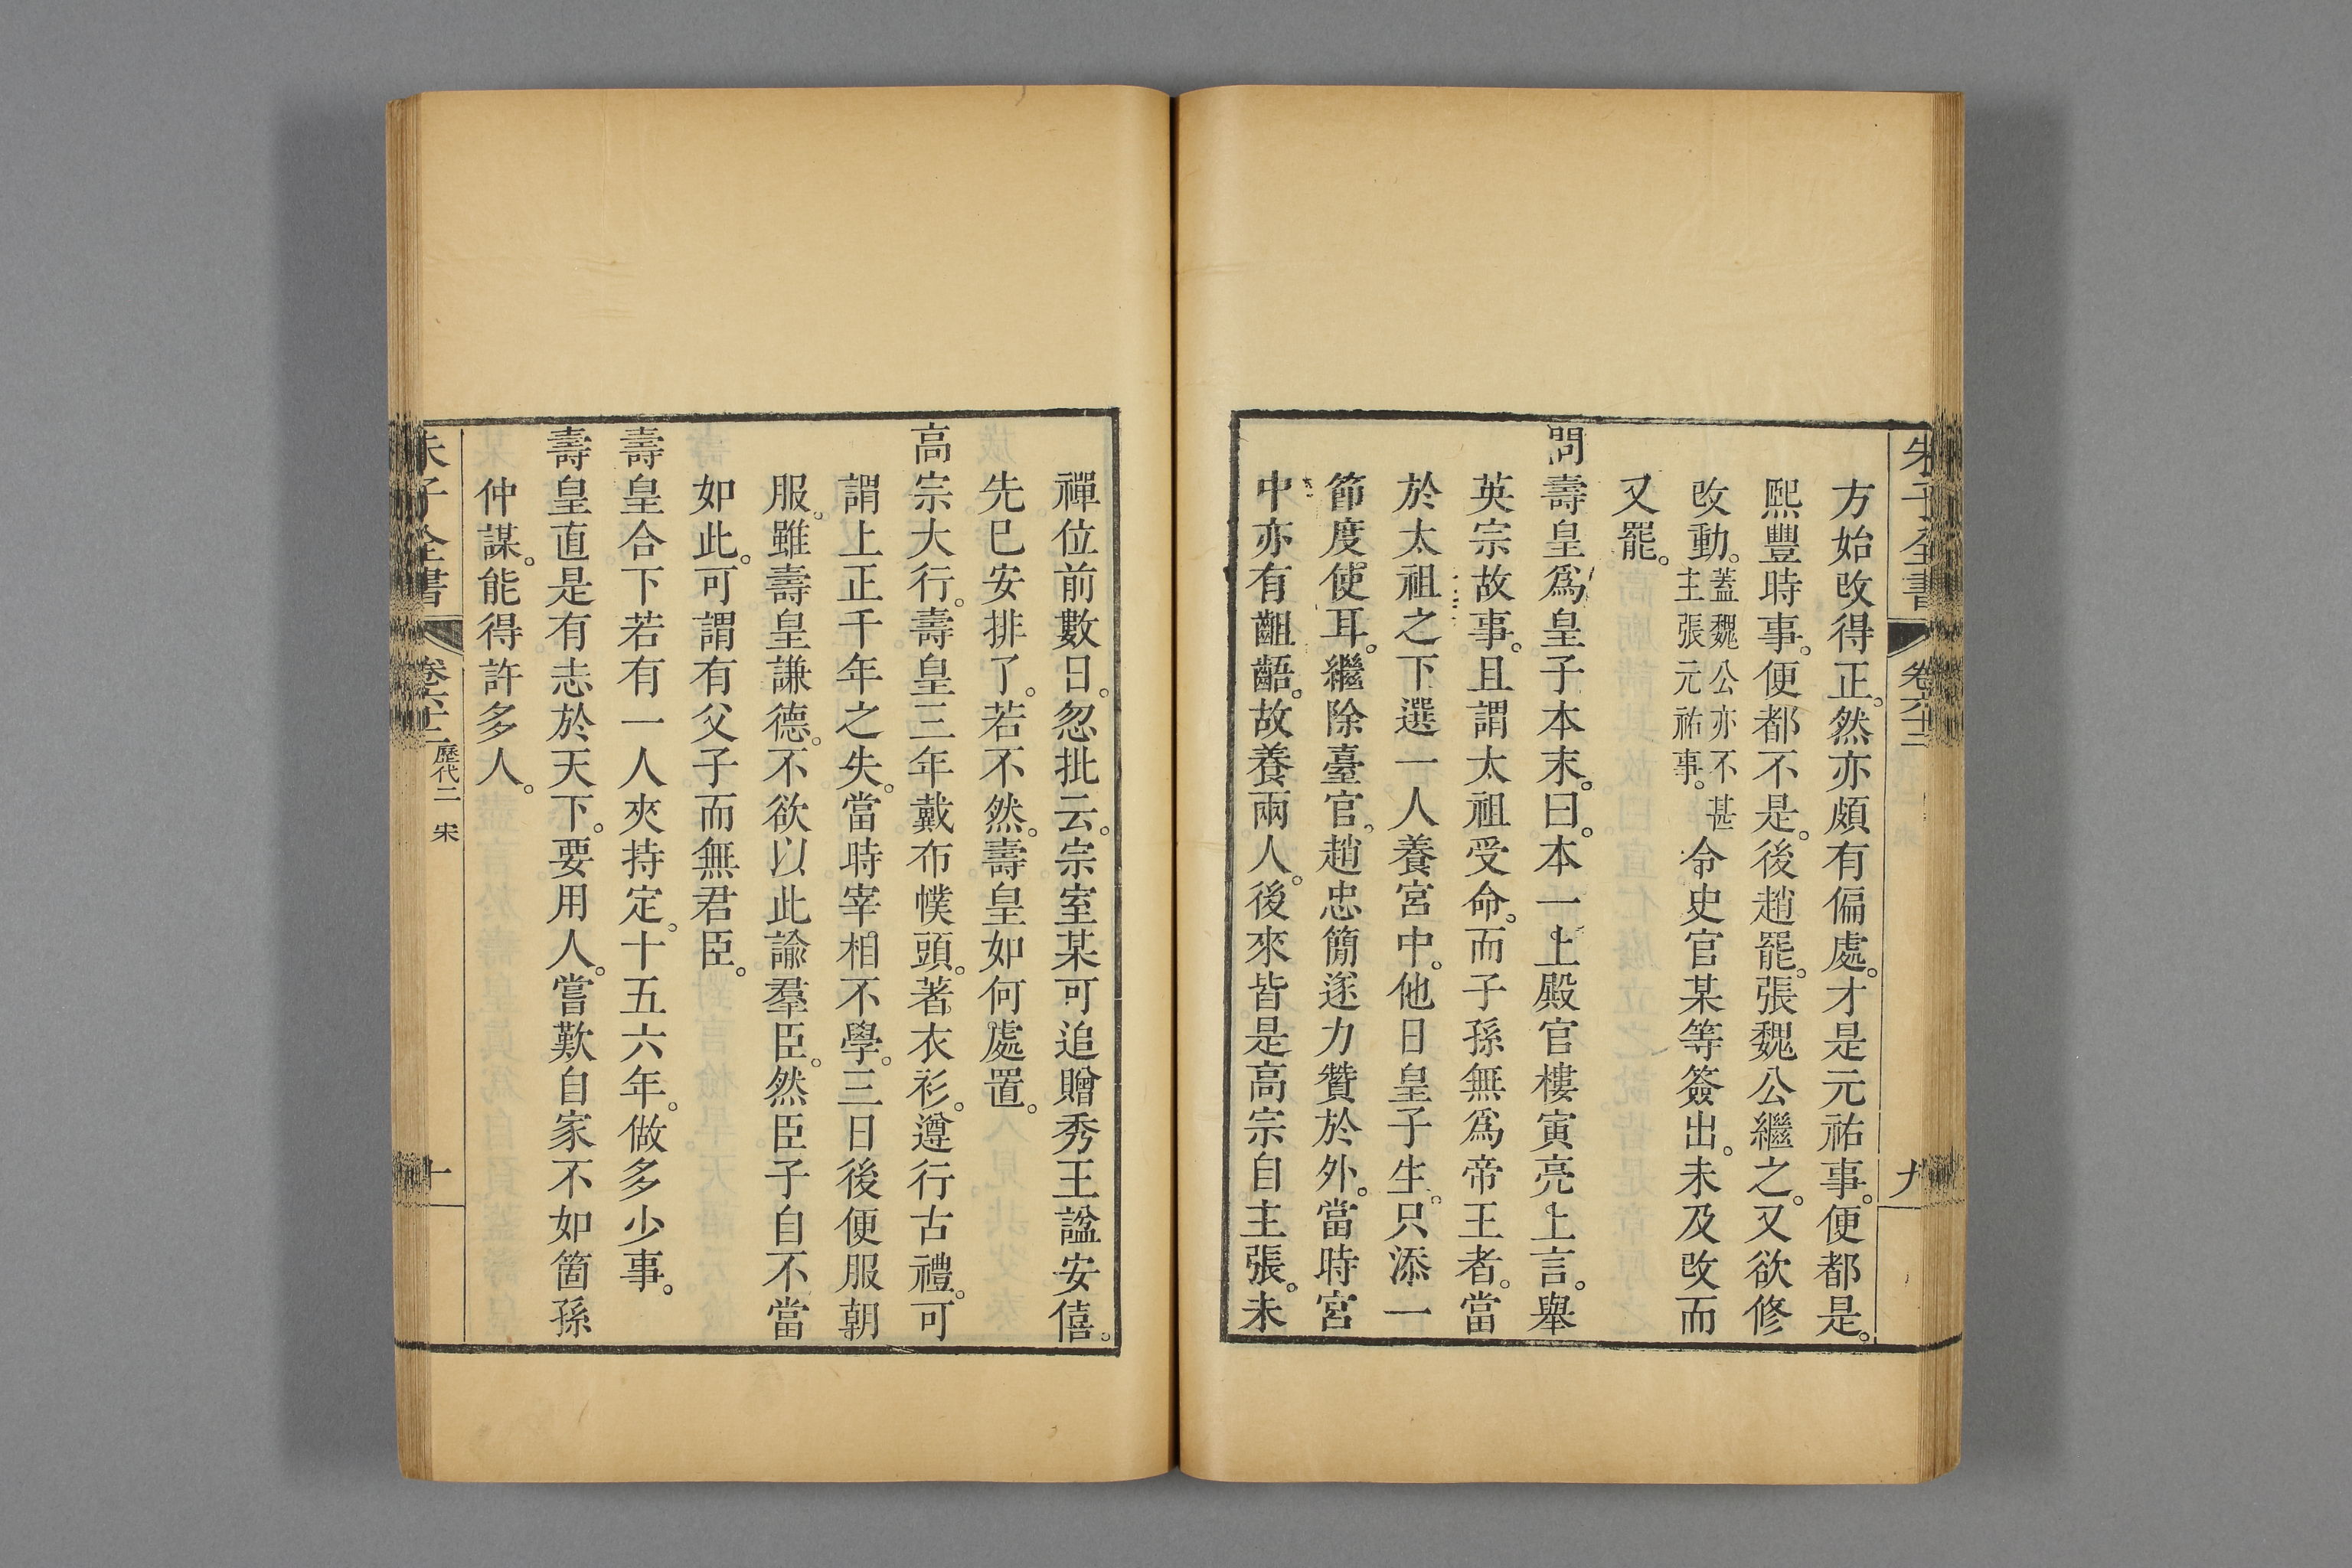 朱子全書 卷六十二 九
方始改得正。然亦頗有偏處。才是元祐事。便都是。
熙豐時事。便都不是。後趙罷。張魏公繼之。又欲修
改動。蓋魏公亦不甚主張元祐事。令史官某等簽出。未及改而
又罷。
問壽皇爲皇子本末。曰。本一上殿官樓寅亮上言。舉
英宗故事。且謂太祖受命。而子孫無爲帝王者。當
於太祖之下選一人養宮中。他日皇子生。只添一
節度使耳。繼除臺官。趙忠簡遂力贊於外。當時宮
中亦有齟齬。故養兩人。後來皆是高宗自主張。未
禪位前數日。忽批云。宗室某可追贈秀王諡安僖。
先已安排了。若不然。壽皇如何處置。
高宗大行。壽皇三年戴布幞頭。著衣衫。遵行古禮。可
謂上正千年之失。當時宰相不學。三日後便服朝
服。雖壽皇謙德。不欲以此諭羣臣。然臣子自不當
如此。可謂有父子而無君臣。
壽皇合下若有一人夾持定。十五六年。做多少事。
壽皇直是有志於天下。要用人。嘗歎自家不如箇孫
仲謀。能得許多人。
朱子全書 卷六十二 歷代二 宋 十